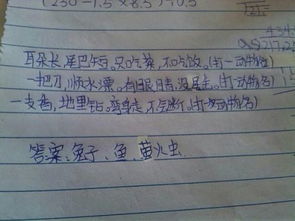 (230-1.5×8.5)÷0.5
耳朵长,尾巴短。只吃菜,不吃饭。(打一动物名)
一把刀,顺水漂。有眼睛,没眉毛。(打一动物名)
一支香,地里钻。弯身走,不会断。(打一动物名)
答案:兔子、鱼、萤火虫